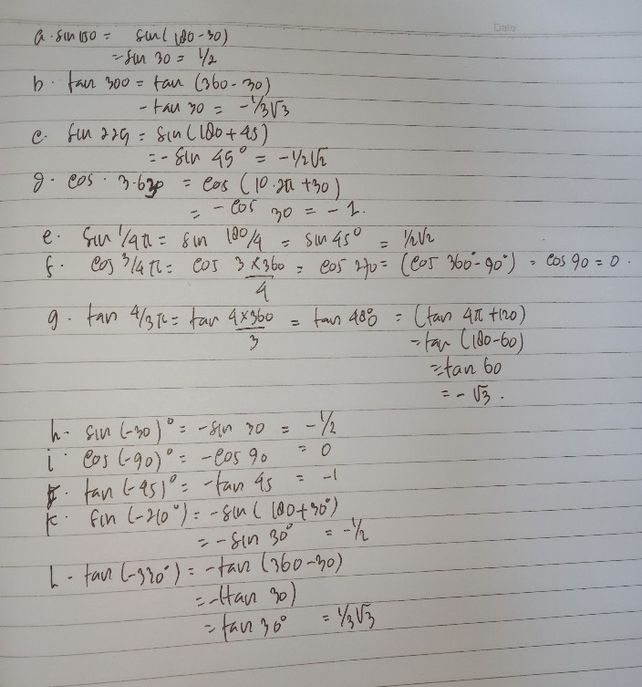 Date
a. sin 150 = sin( 180-30)
= sin 30 = 1/2
b. tan 300 = tan (360-30)
- tan 30 = -1/3√3
c. sin 225 = sin (180+45)
= - sin 45° = -1/2√2
d. cos. 3.630 = cos (10.2π +30)
= - cos 30 = -1.
e. sin 1/4π = sin 180/4 = sin 45° = 1/2√2
f. cos 3/4π = cos 3×360/4 = cos 270 = (cos 360°-90°) = cos 90 = 0.
g. tan 4/3π = tan 4×360/3 = tan 480 = (tan 4π +120)
= tan (180-60)
= tan 60
= - √3.
h. sin (-30)° = - sin 30 = -1/2
i. cos (-90)° = - cos 90 = 0
j. tan (-45)° = - tan 45 = -1
k. sin (-210°) = - sin ( 180+30°)
= - sin 30° = -1/2
L. tan (-330°) = - tan (360-30)
= -(tan 30)
= tan 30° = 1/3√3